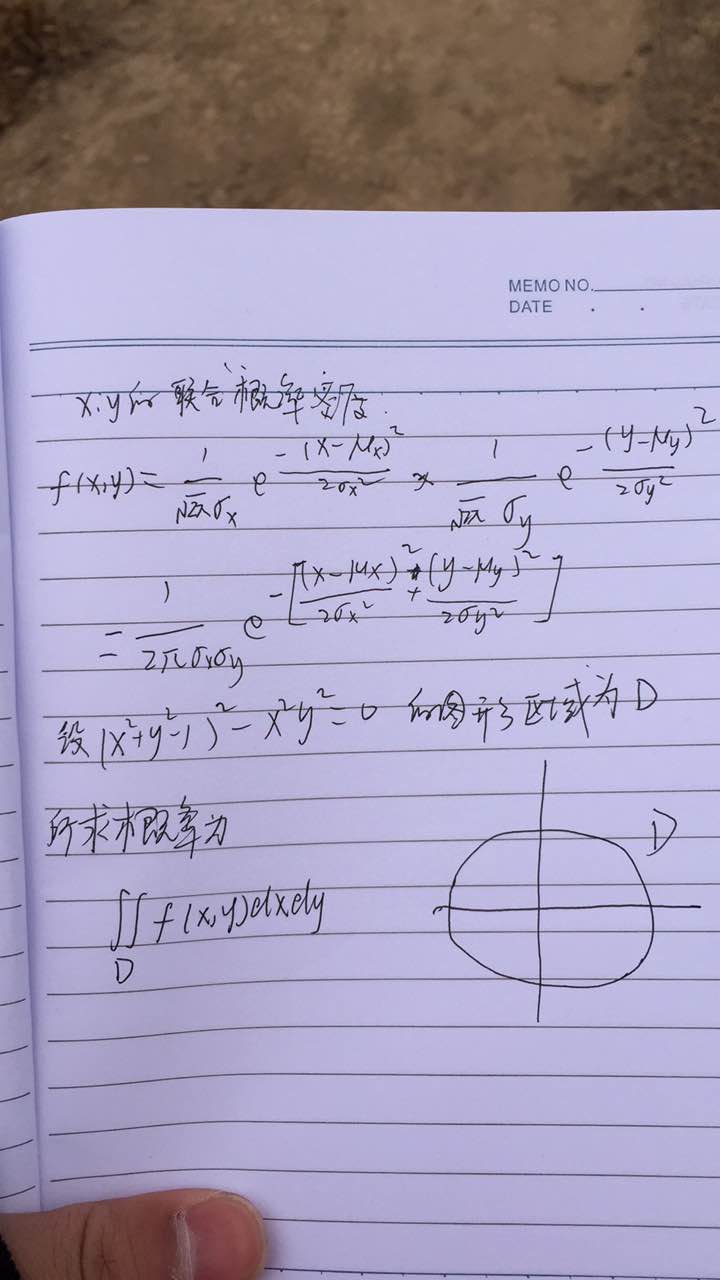 MEMO NO.
DATE . .
x.y的联合概率密度.
f(x,y)= 1/(√2π σx) e^(-(x-μx)²/(2σx²)) × 1/(√2π σy) e^(-(y-μy)²/(2σy²))
= 1/(2πσxσy) e^(-[(x-μx)²/(2σx²) + (y-μy)²/(2σy²)])
设(x²+y²-1)²-x²y²=0 的图形区域为D
所求概率为
D
∬_D f(x,y)dxdy